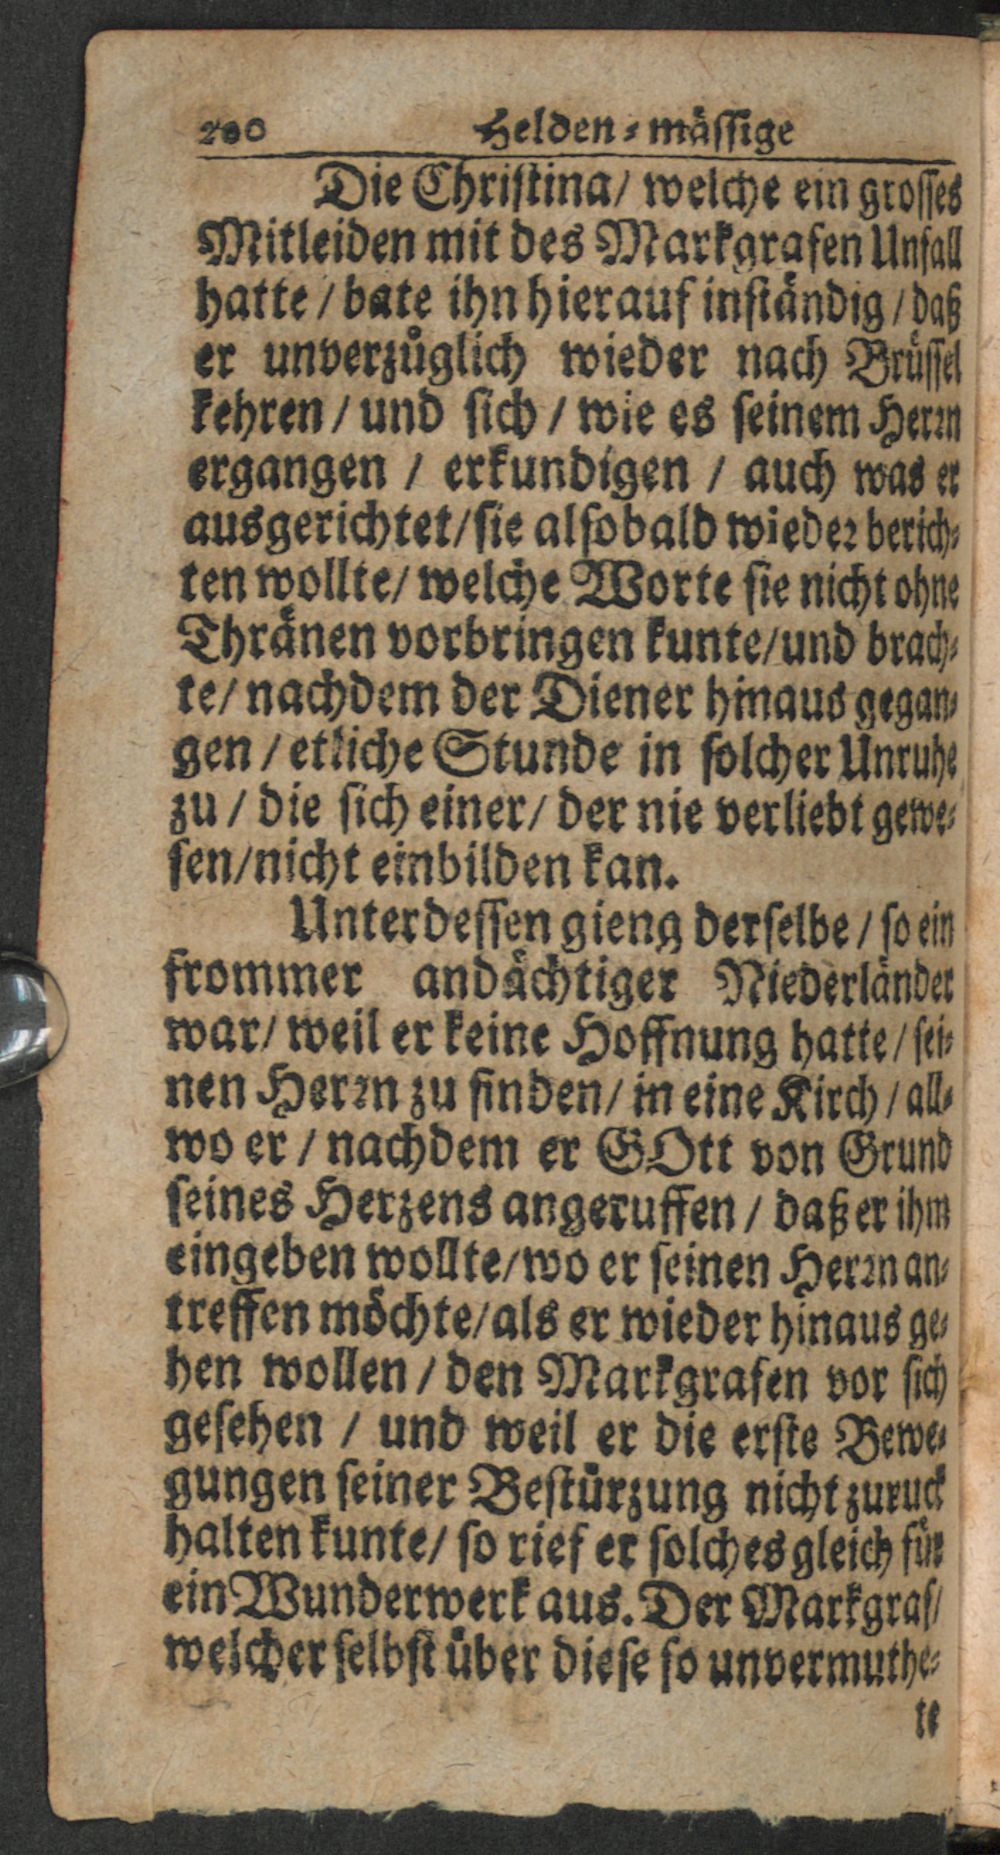 200 Helden-mässige
Die Christina/ welche ein grosses
Mitleiden mit des Markgrafen Unfall
hatte / bate ihn hierauf inständig / daß
er unverzůglich wieder nach Brüssel
kehren / und sich / wie es seinem Herrn
ergangen / erkundigen / auch was er
ausgerichtet/sie alsobald wieder berich-
ten wollte/ welche Worte sie nicht ohne
Thränen vorbringen kunte/und brach-
te/ nachdem der Diener hinaus gegan-
gen / etliche Stunde in solcher Unruhe
zu / die sich einer/ der nie verliebt gewe-
sen/nicht einbilden kan.
Unterdessen gieng derselbe / so ein
frommer andächtiger Niederländer
war/ weil er keine Hoffnung hatte / sei-
nen Herrn zu finden/ in eine Kirch / all-
wo er / nachdem er GOtt von Grund
seines Herzens angeruffen / daß er ihm
eingeben wollte/wo er seinen Herrn an-
treffen möchte/als er wieder hinaus ge-
hen wollen / den Markgrafen vor sich
gesehen / und weil er die erste Bewe-
gungen seiner Bestürzung nicht zuruck
halten kunte/ so rief er solches gleich für
ein Wunderwerk aus. Der Markgraf/
welcher selbst über diese so unvermuthe-
te